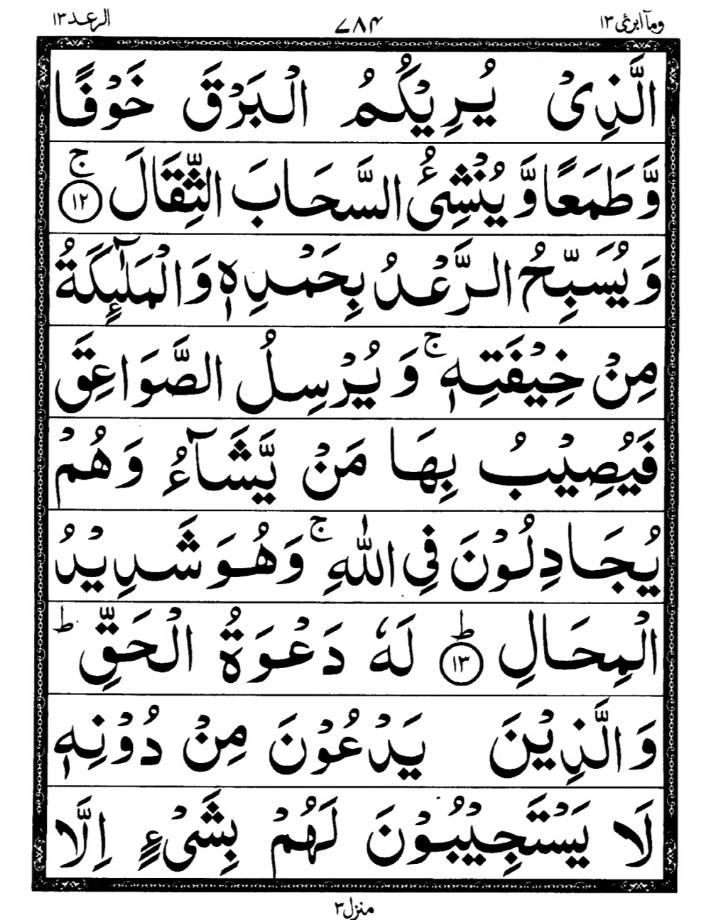 وما ابرئ ١٣ ٧٨٤ الرعد ١٣
الَّذِیْ یُرِیْكُمُ الْبَرْقَ خَوْفًا
وَّطَمَعًا وَّیُنْشِئُ السَّحَابَ الثِّقَالَ ۚ﴿۱۲﴾
وَیُسَبِّحُ الرَّعْدُ بِحَمْدِهٖ وَالْمَلٰٓىِٕكَةُ
مِنْ خِیْفَتِهٖ ۚ وَیُرْسِلُ الصَّوَاعِقَ
فَیُصِیْبُ بِهَا مَنْ یَّشَآءُ وَهُمْ
یُجَادِلُوْنَ فِی اللّٰهِ ۚ وَهُوَ شَدِیْدُ
الْمِحَالِ ؕ﴿۱۳﴾ لَهٗ دَعْوَةُ الْحَقِّ ؕ
وَالَّذِیْنَ یَدْعُوْنَ مِنْ دُوْنِهٖ
لَا یَسْتَجِیْبُوْنَ لَهُمْ بِشَیْءٍ اِلَّا
منزل ٣